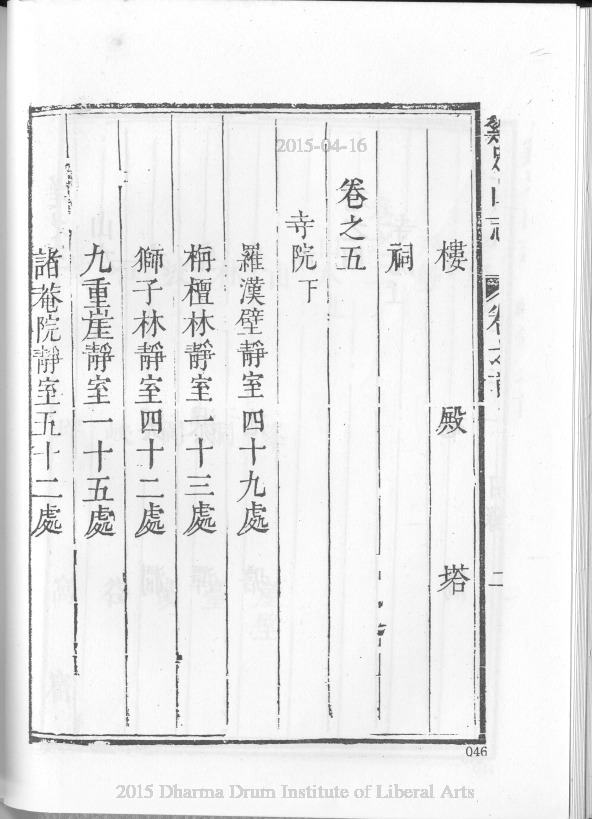 2015-04-16
山志 卷之首 二
樓 殿 塔
祠
卷之五
寺院下
羅漢壁靜室四十九處
栴檀林靜室一十三處
獅子林靜室四十二處
九重崖靜室一十五處
諸菴院靜室五十二處
046
2015 Dharma Drum Institute of Liberal Arts